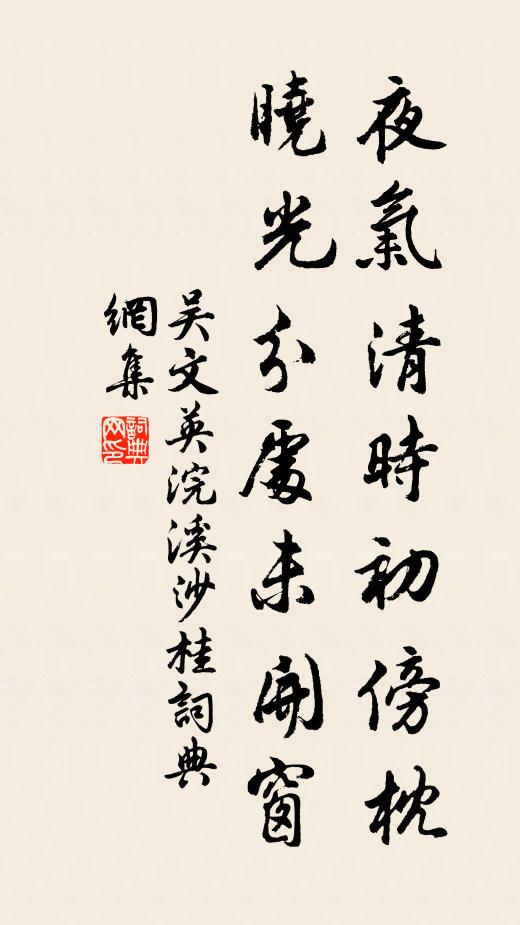 夜氣清時初傍枕
曉光分處未開窗
吳文英浣溪沙桂詞典
網集
詞典網印